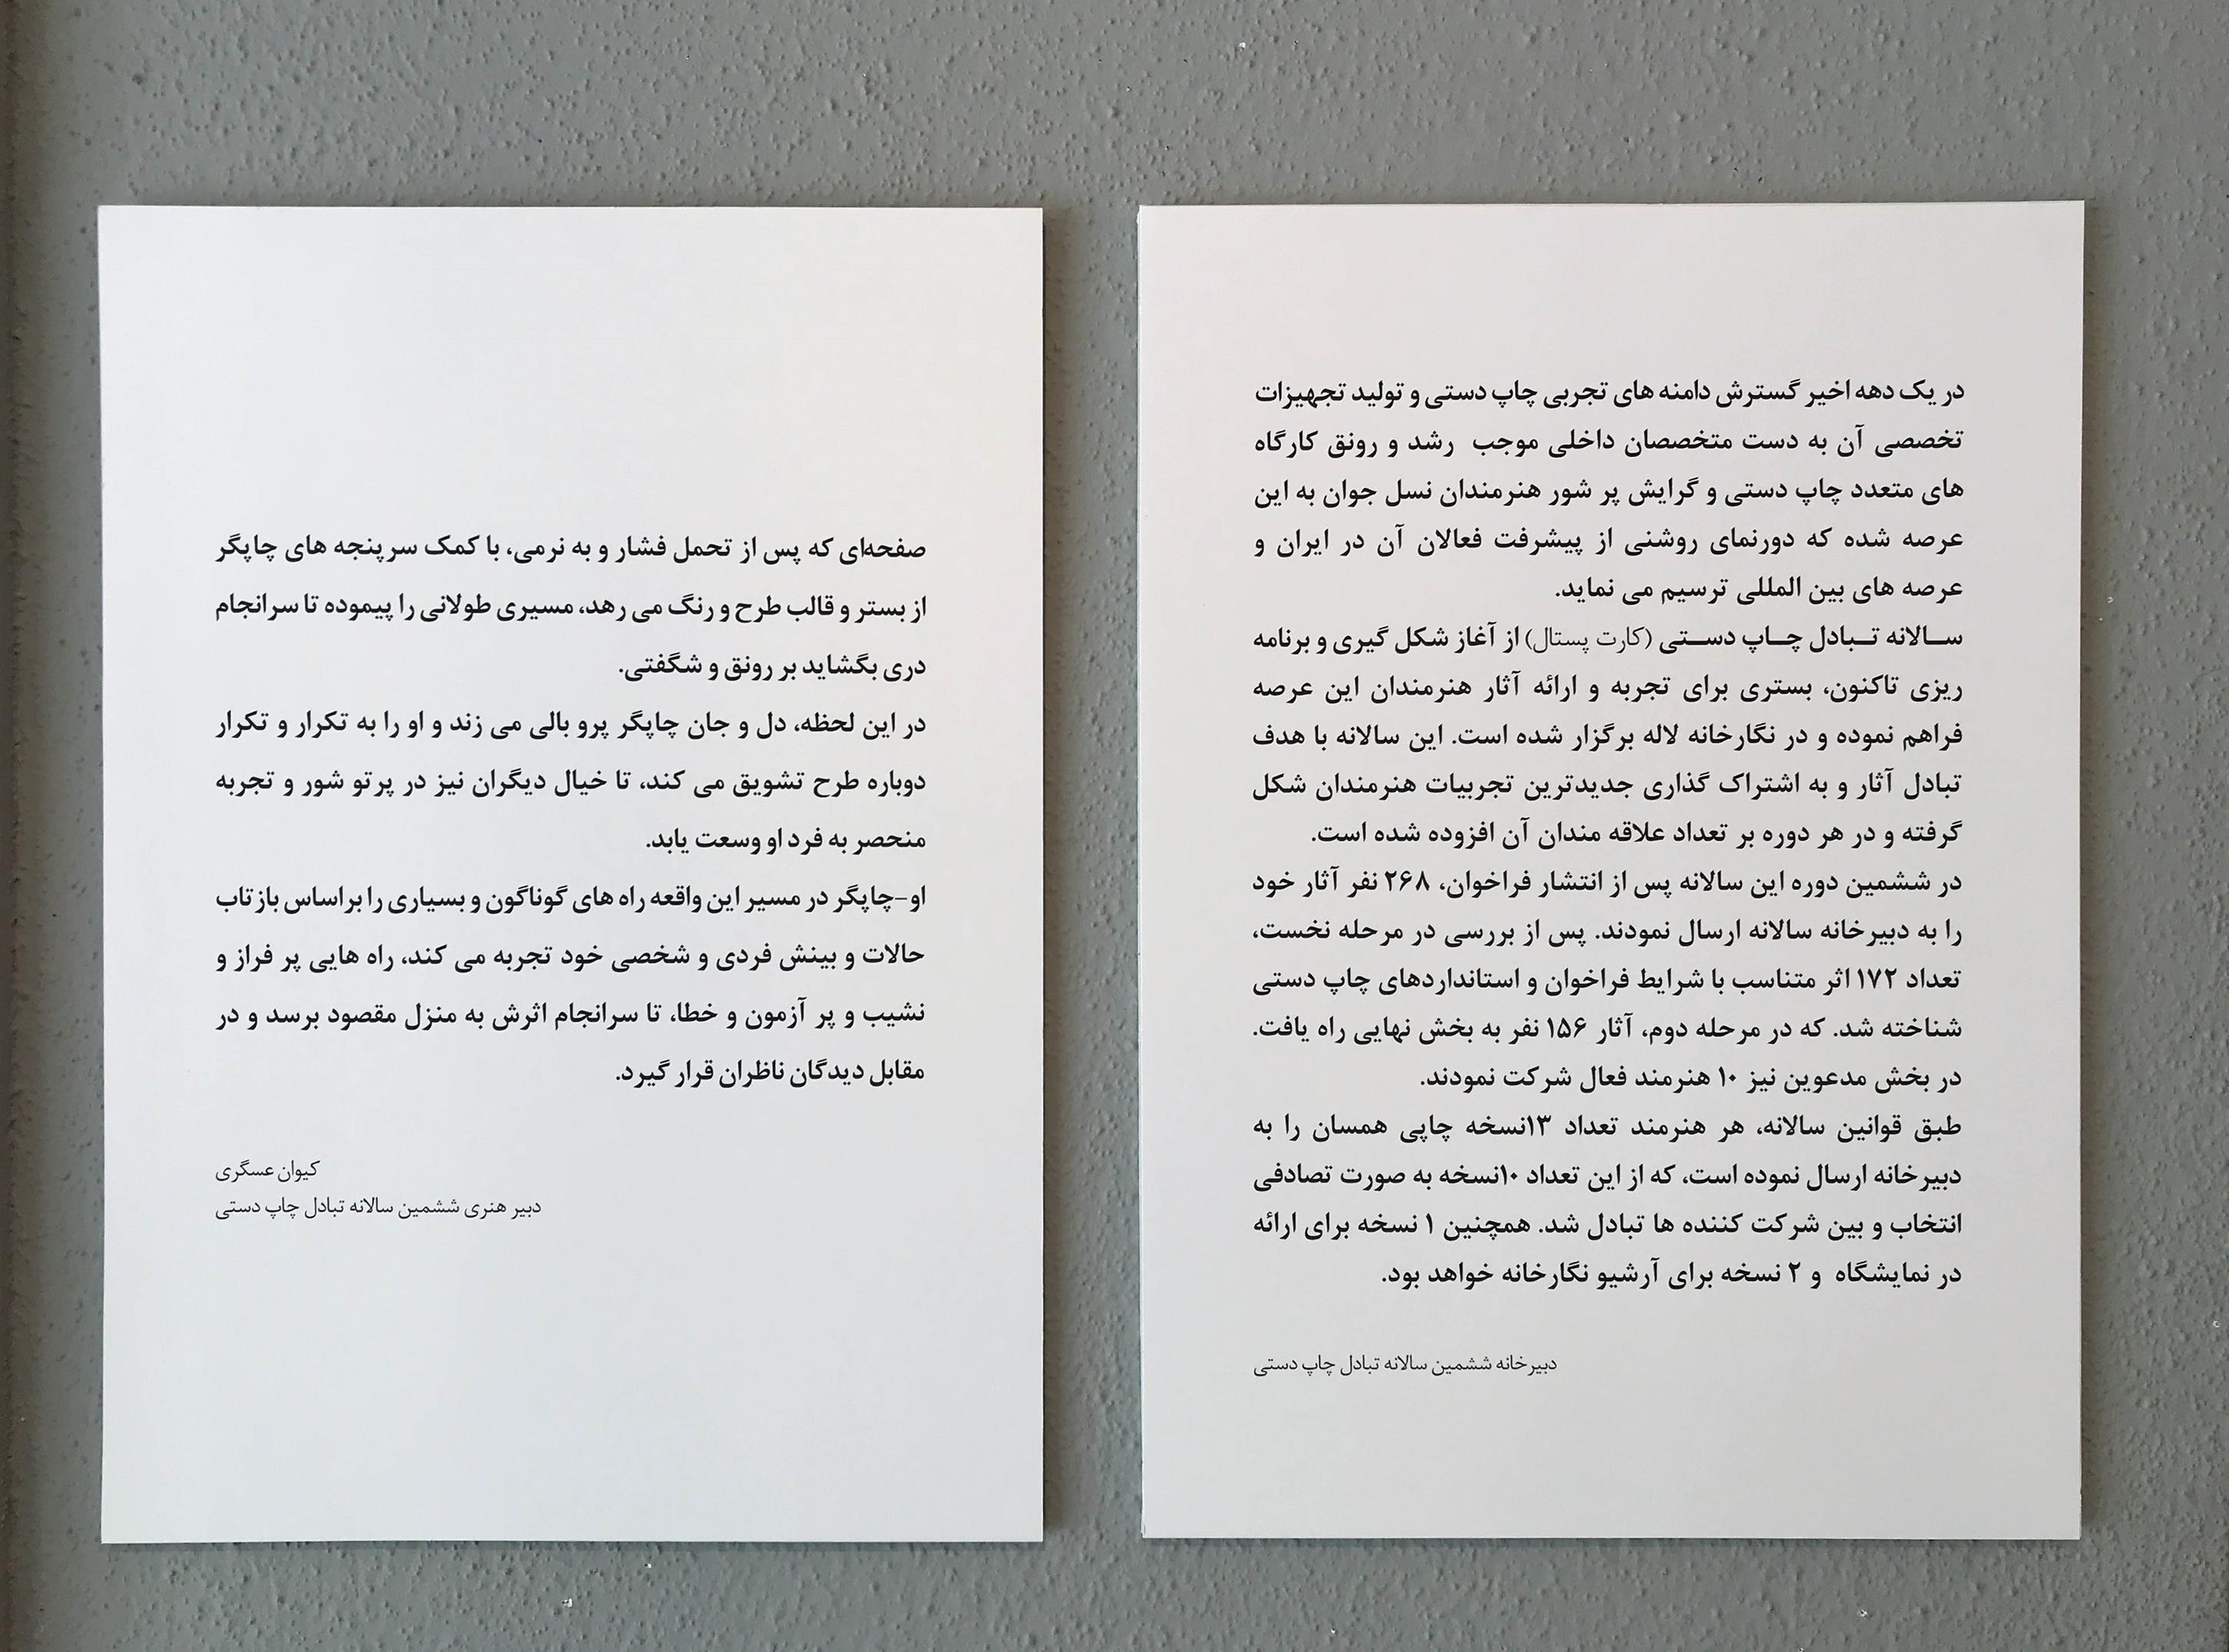 در یک دهه اخیر گسترش دامنه های تجربی چاپ دستی و تولید تجهیزات
تخصصی آن به دست متخصصان داخلی موجب رشد و رونق کارگاه
های متعدد چاپ دستی و گرایش پر شور هنرمندان نسل جوان به این
عرصه شده که دورنمای روشنی از پیشرفت فعالان آن در ایران و
عرصه های بین المللی ترسیم می نماید.
ســالانه تــبادل چــاپ دســتی (کارت پستال) از آغاز شکل گیری و برنامه
ریزی تاکنون، بستری برای تجربه و ارائه آثار هنرمندان این عرصه
فراهم نموده و در نگارخانه لاله برگزار شده است. این سالانه با هدف
تبادل آثار و به اشتراک گذاری جدیدترین تجربیات هنرمندان شکل
گرفته و در هر دوره بر تعداد علاقه مندان آن افزوده شده است.
در ششمین دوره این سالانه پس از انتشار فراخوان، ۲۶۸ نفر آثار خود
را به دبیرخانه سالانه ارسال نمودند. پس از بررسی در مرحله نخست،
تعداد ۱۷۲ اثر متناسب با شرایط فراخوان و استانداردهای چاپ دستی
شناخته شد. که در مرحله دوم، آثار ۱۵۶ نفر به بخش نهایی راه یافت.
در بخش مدعوین نیز ۱۰ هنرمند فعال شرکت نمودند.
طبق قوانین سالانه، هر هنرمند تعداد ۱۳نسخه چاپی همسان را به
دبیرخانه ارسال نموده است، که از این تعداد ۱۰نسخه به صورت تصادفی
انتخاب و بین شرکت کننده ها تبادل شد. همچنین ۱ نسخه برای ارائه
در نمایشگاه و ۲ نسخه برای آرشیو نگارخانه خواهد بود.
دبیرخانه ششمین سالانه تبادل چاپ دستی
صفحه‌ای که پس از تحمل فشار و به نرمی، با کمک سرپنجه های چاپگر
از بستر و قالب طرح و رنگ می رهد، مسیری طولانی را پیموده تا سرانجام
دری بگشاید بر رونق و شگفتی.
در این لحظه، دل و جان چاپگر پرو بالی می زند و او را به تکرار و تکرار
دوباره طرح تشویق می کند، تا خیال دیگران نیز در پرتو شور و تجربه
منحصر به فرد او وسعت یابد.
او-چاپگر در مسیر این واقعه راه های گوناگون و بسیاری را براساس بازتاب
حالات و بینش فردی و شخصی خود تجربه می کند، راه هایی پر فراز و
نشیب و پر آزمون و خطا، تا سرانجام اثرش به منزل مقصود برسد و در
مقابل دیدگان ناظران قرار گیرد.
کیوان عسگری
دبیر هنری ششمین سالانه تبادل چاپ دستی